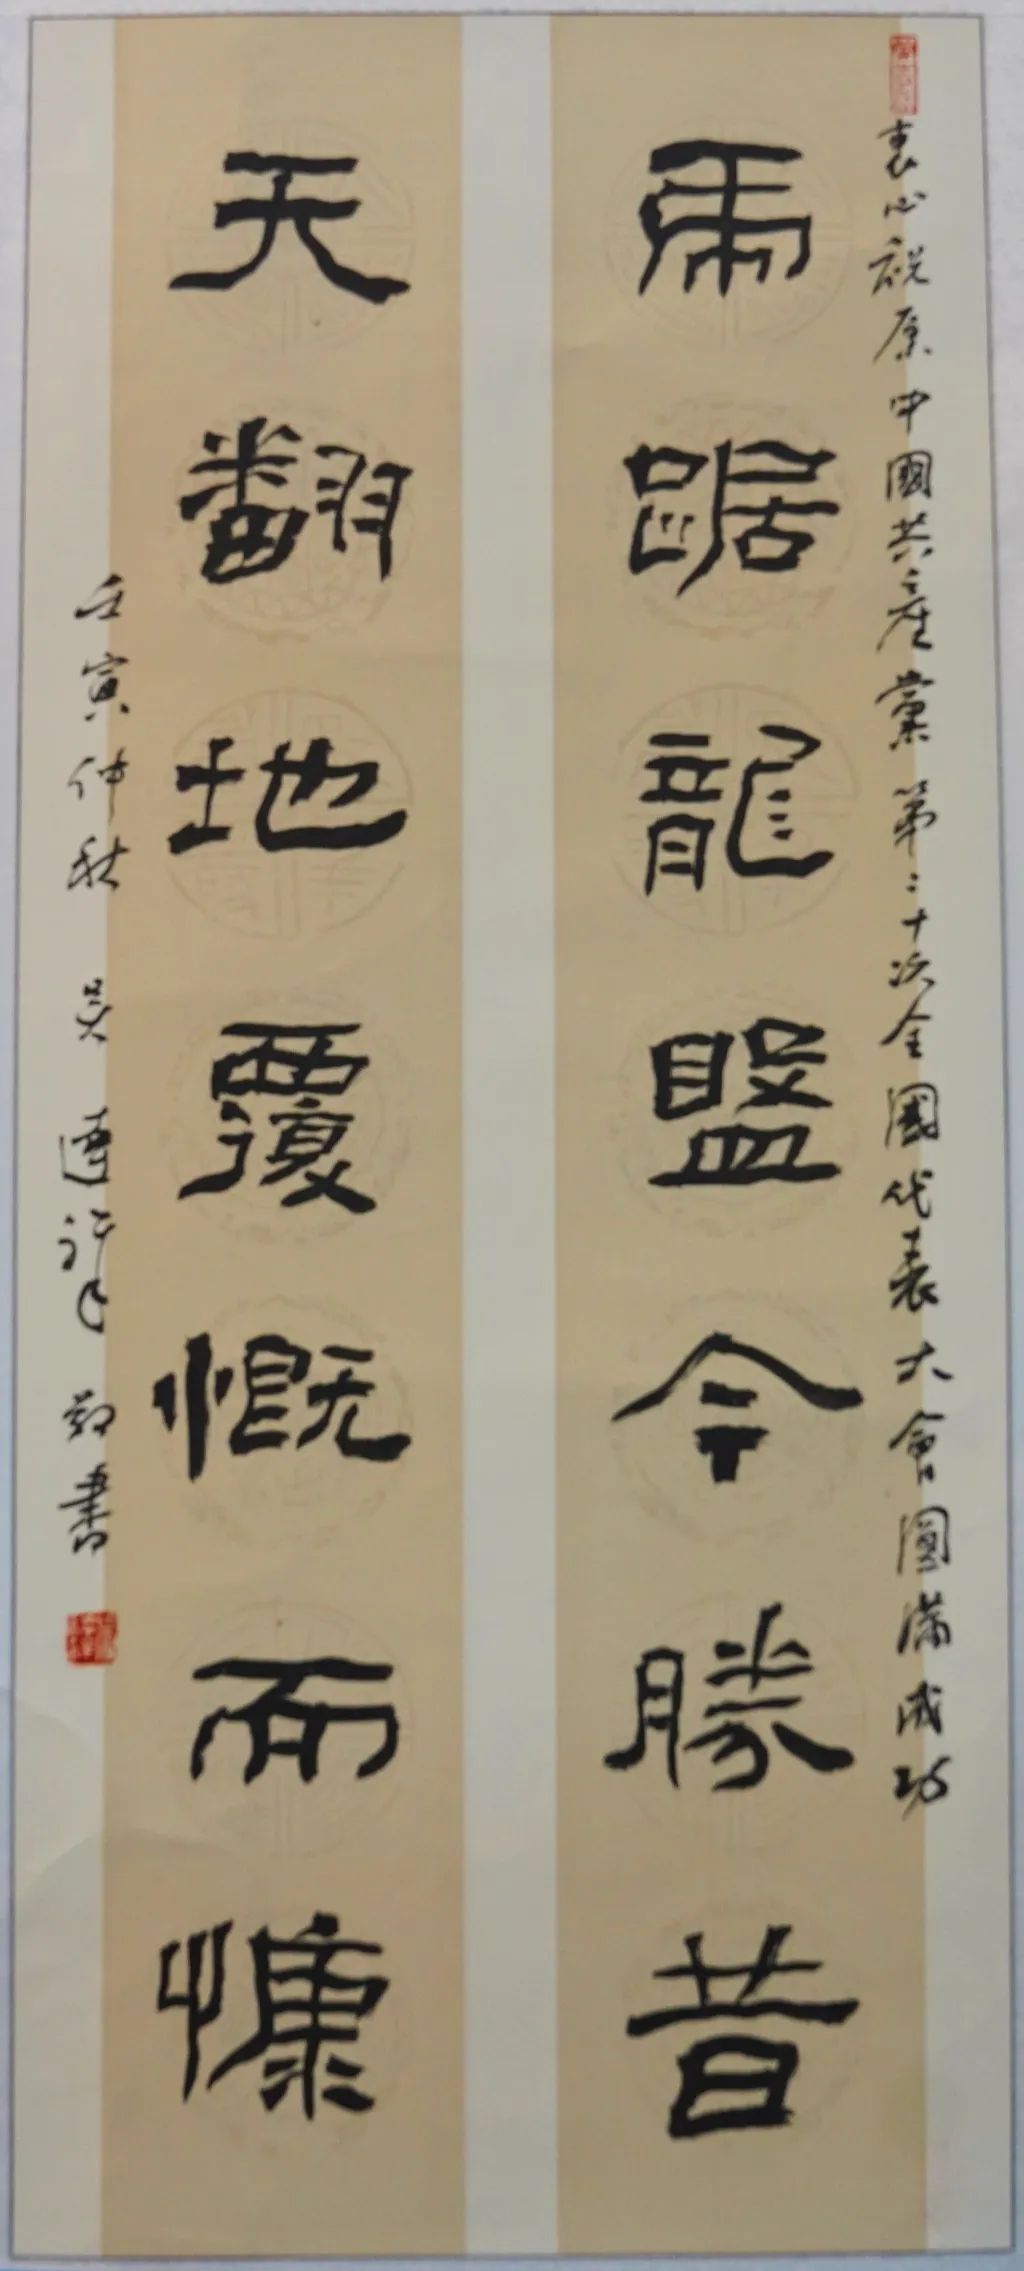 衷心祝愿中國共產黨第二十次全國代表大會圓滿成功
虎踞龍盤今勝昔
天翻地覆慨而慷
壬寅仲秋 吴蓮祥敬書